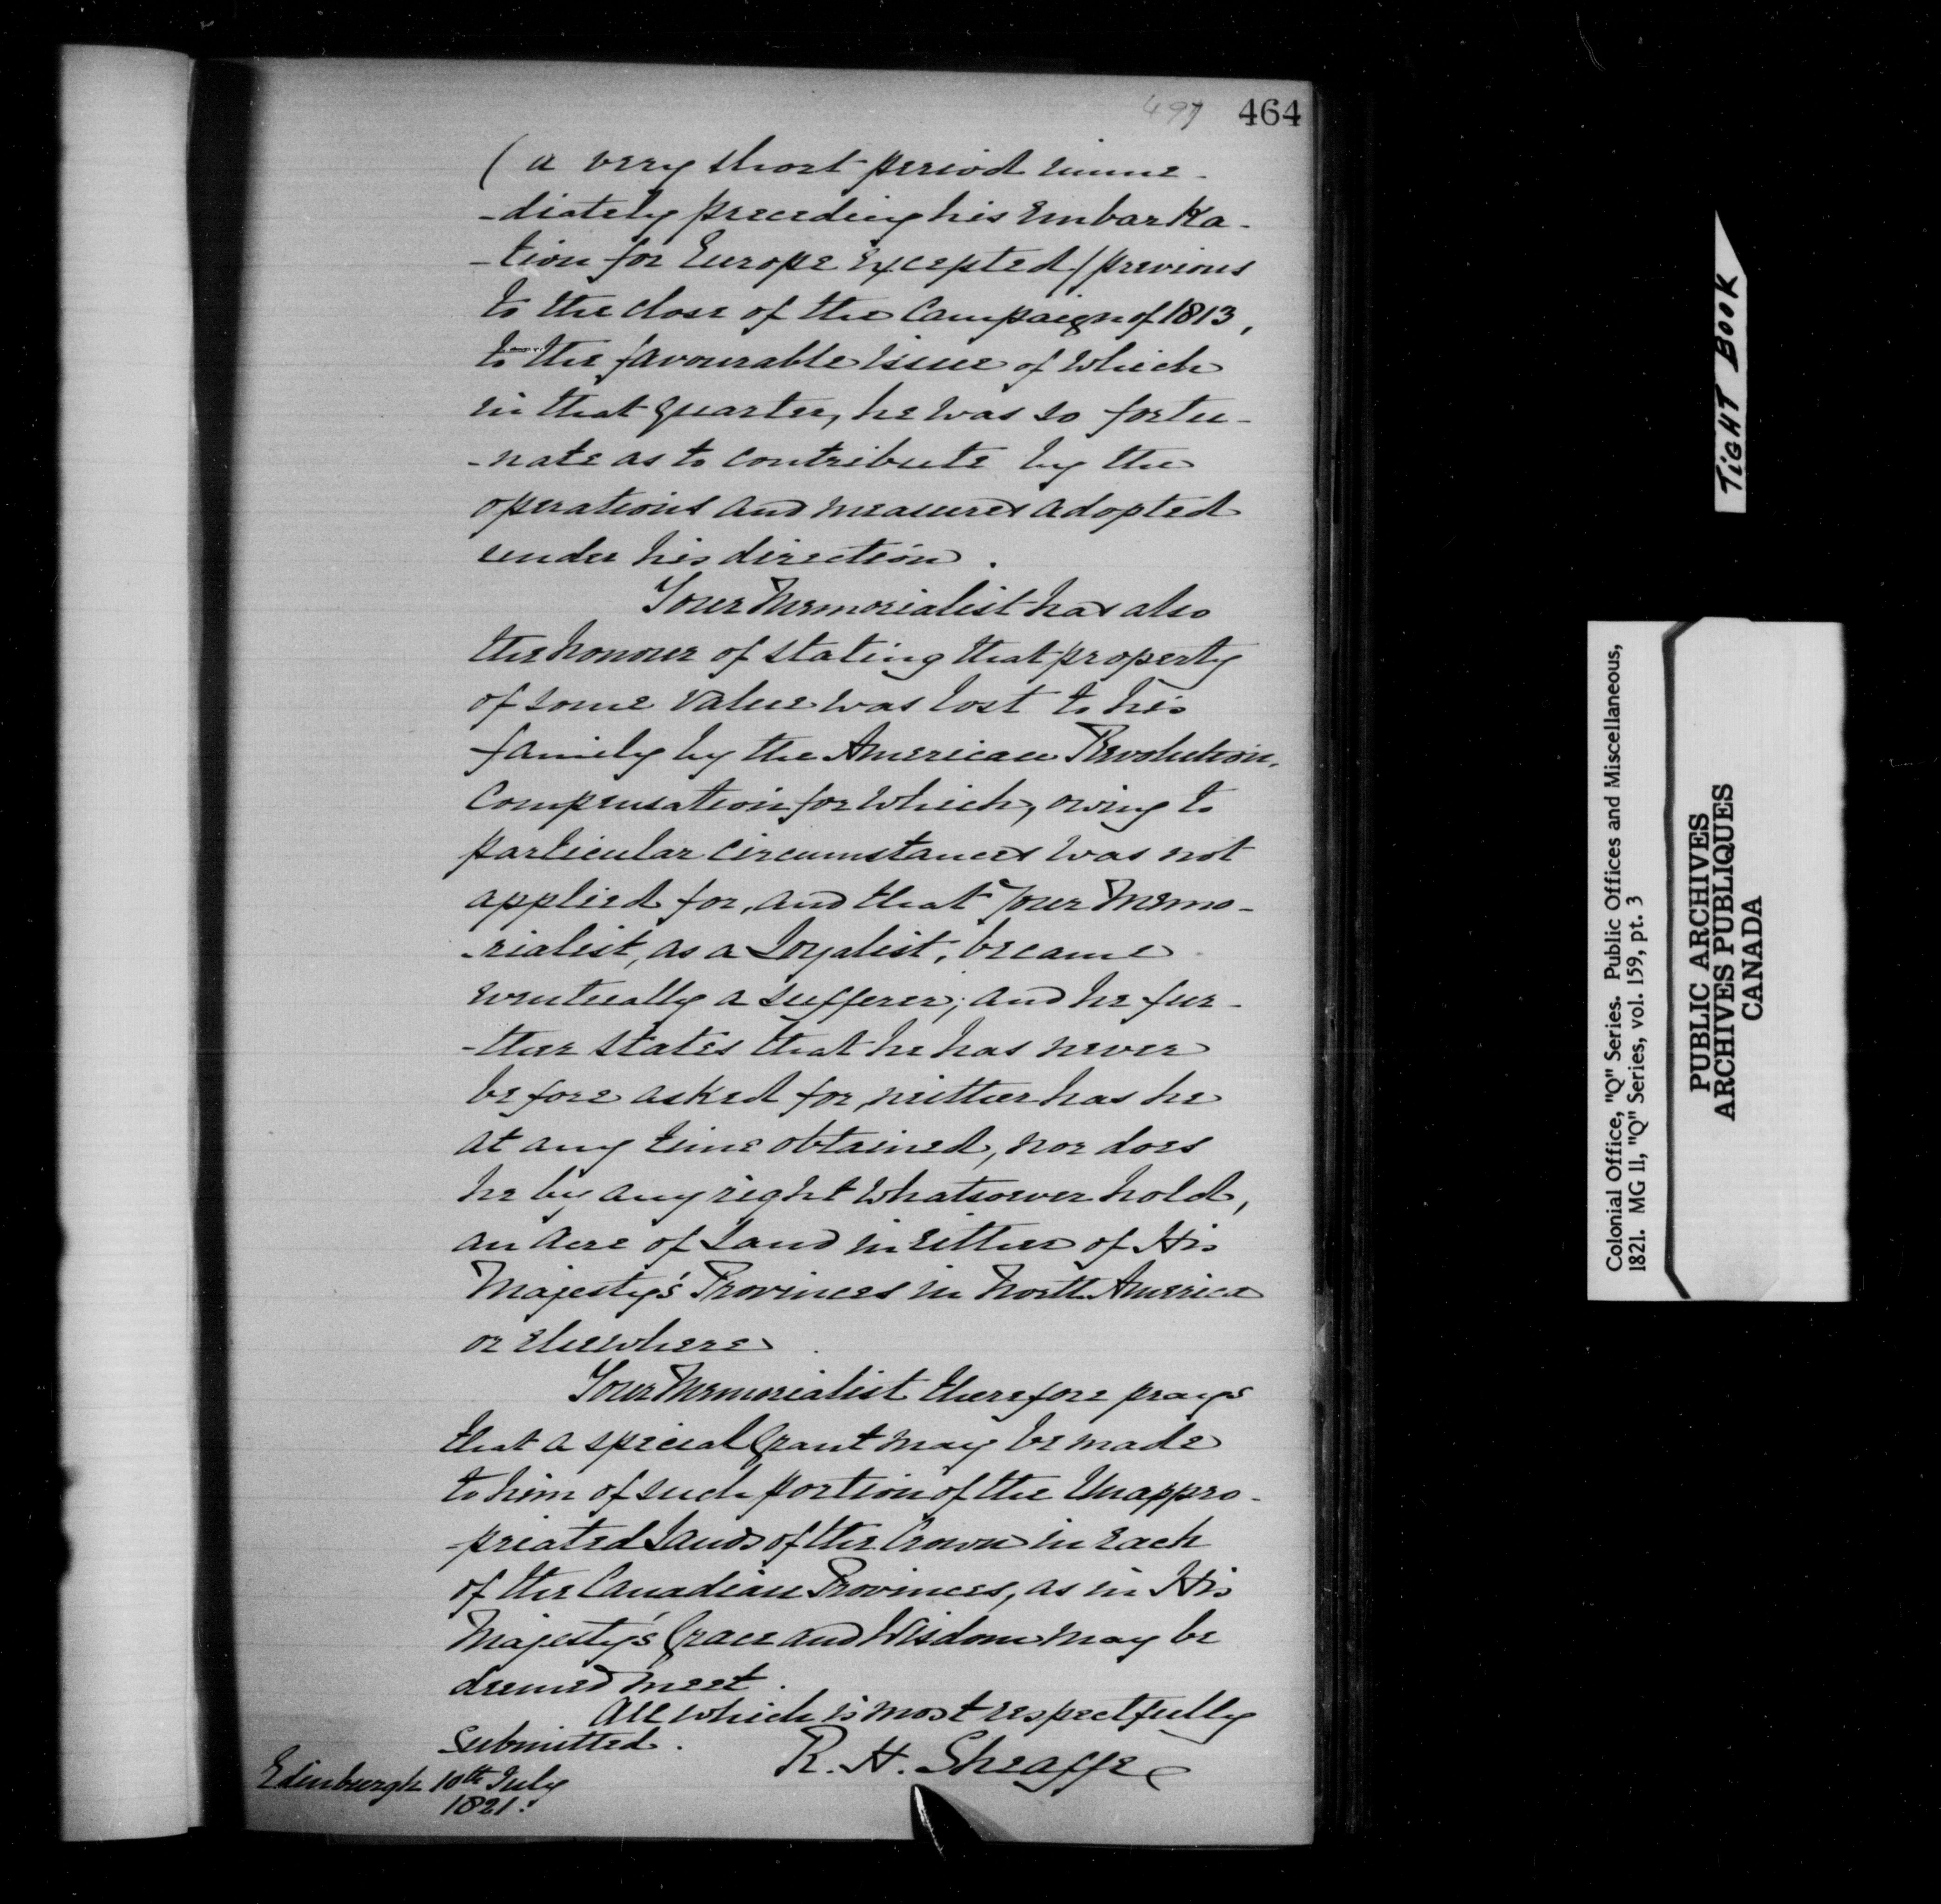 497 464
( a very short period imme-
-diately preceding his Embarka-
-tion for Europe excepted) previous
to the close of the Campaign of 1813,
to the favourable issue of which
in that quarter, he was so fortu-
-nate as to contribute by the
operations and measures adopted
under his direction.
Your Memorialist has also
the honour of stating that property
of some value was lost to his
family by the American Revolution,
Compensation for which, owing to
particular circumstances was not
applied for, and that your Memo-
-rialist, as a Loyalist, became
eventually a sufferer; and he fur-
-ther states that he has never
before asked for, neither has he
at any time obtained, nor does
he by any right whatsoever hold,
an acre of Land in either of His
Majesty's Provinces in North America
or elsewhere.
Your Memorialist therefore prays
that a special Grant may be made
to him of such portion of the Unappro-
-priated Lands of the Crown in each
of the Canadian Provinces, as in His
Majesty's Grace and Wisdom may be
deemed meet.
All which is most respectfully
submitted.
R. H. Sheaffe
Edinburgh 10th July
1821.
TIGHT BOOK
Colonial Office, "Q" Series. Public Offices and Miscellaneous,
1821. MG 11, "Q" Series, vol. 159, pt. 3
PUBLIC ARCHIVES
ARCHIVES PUBLIQUES
CANADA